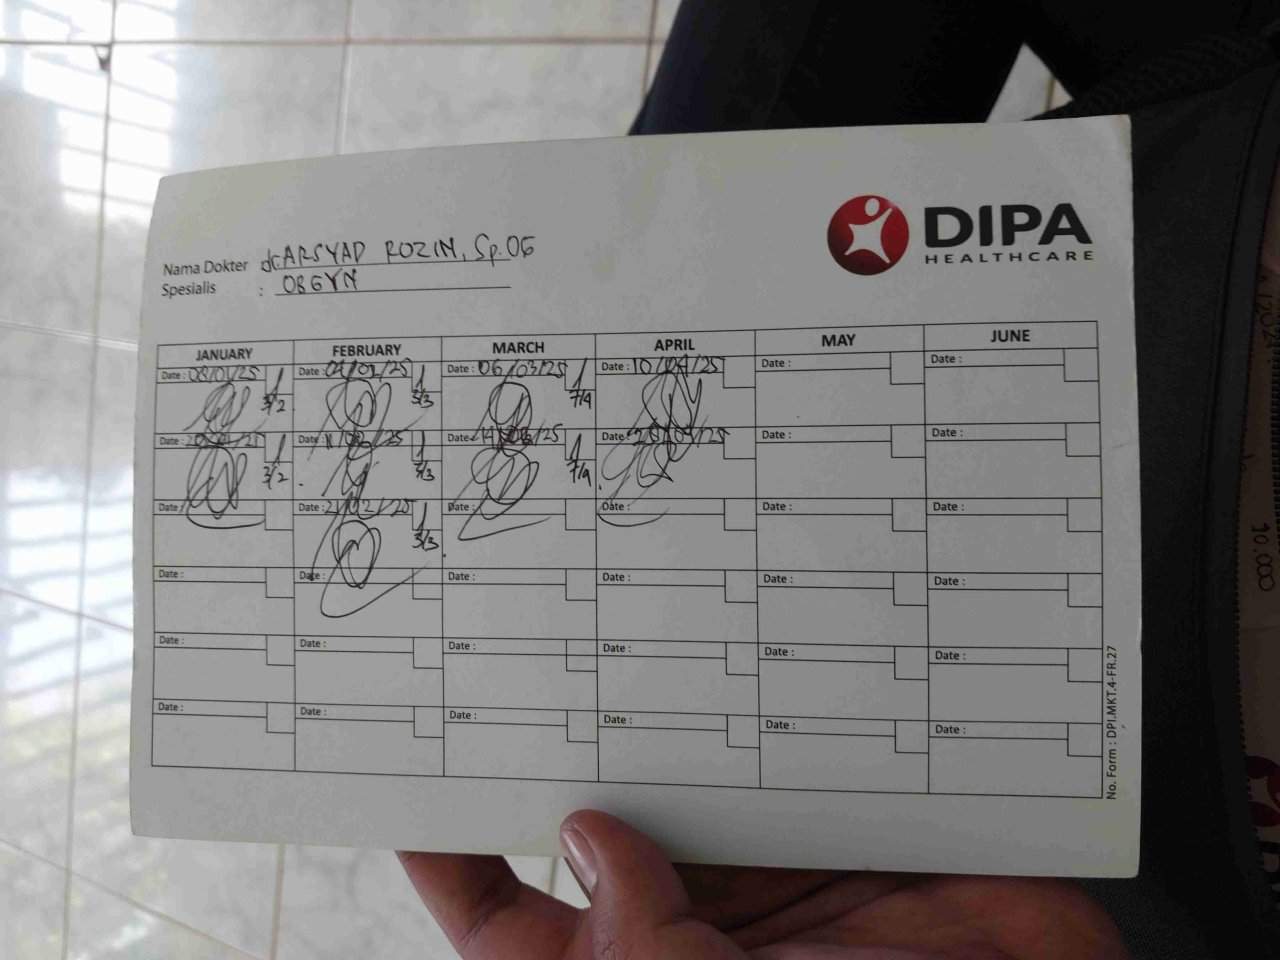 DIPA
HEALTHCARE
Nama Dokter dr ARSYAD ROZIN, Sp.OG
Spesialis : OBGYN
JANUARY FEBRUARY MARCH APRIL MAY JUNE
Date : 08/01/25 Date : Date : 06/03/25 Date : 10/04/25 Date : Date :
3/2 3/3 7/4
Date : Date : Date : Date : Date : Date :
3/2 3/3 7/4
Date : Date : 21/02/25 Date : Date : Date : Date :
3/3
Date : Date : Date : Date : Date : Date :
Date : Date : Date : Date : Date : Date :
Date : Date : Date : Date : Date : Date :
No. Form : DPI.MKT.4-FR.27
10.000